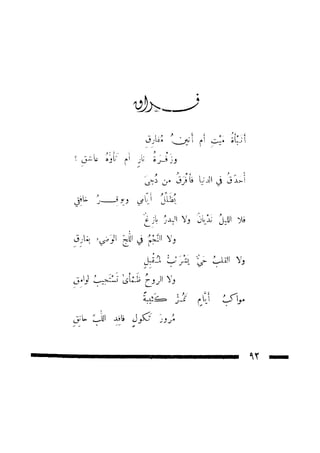 فـــراق
أنبأةُ ميْتٍ أم أنينُ مفارقِ
وزَفْـرَةُ نارٍ أم تأوّهُ عاشقِ ؟
أُحدّقُ في الدنيا فأفْرَقُ من دُجىً
يُظلّلُ أيّامي ويوقـــرُ خافقي
فلا الليلُ نَدْمانٌ ولا البدرُ بازغٌ
ولا النّجْمُ في اللّجّ الوَضيءِ بغارقِ
ولا القلبُ حيٌّ يشْرَئبُّ لمُقْبِلٍ
ولا الروحُ ظمْأى تستجيبُ لوامقِ
مواكبُ أيّامٍ تمُرُّ كئيبةً
مُرورَ نَكولٍ فاقدِ اللّبّ حانقِ
٩٣